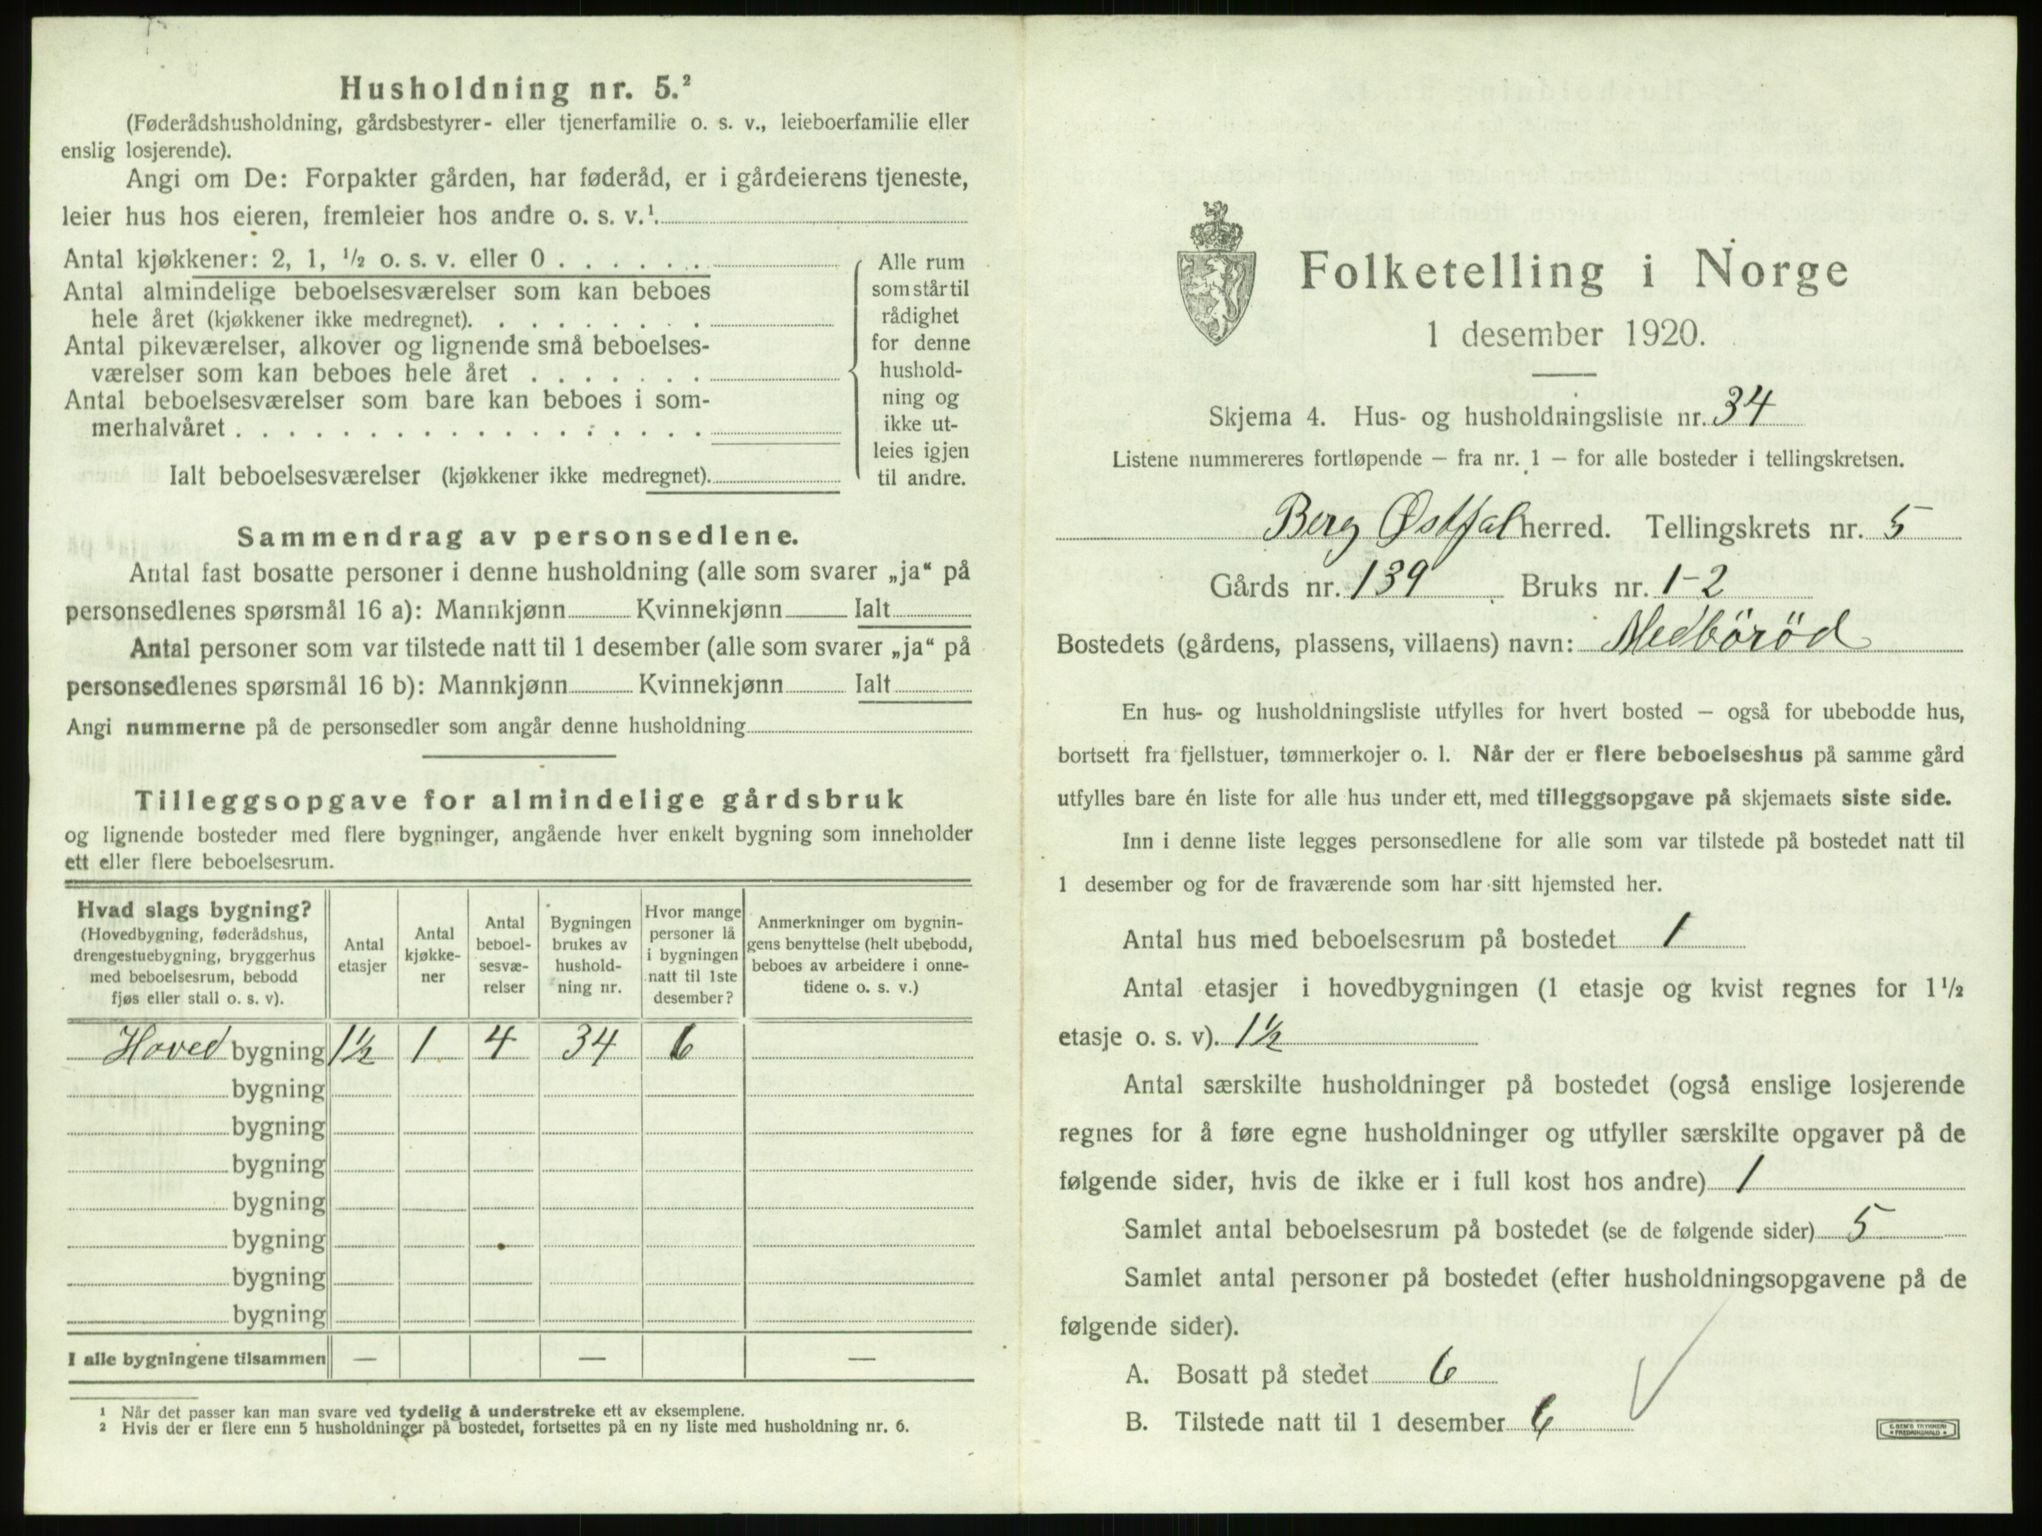 Husholdning nr. 5.²
(Føderådshusholdning, gårdsbestyrer- eller tjenerfamilie o. s. v., leieboerfamilie eller
enslig losjerende).
Angi om De: Forpakter gården, har føderåd, er i gårdeierens tjeneste,
leier hus hos eieren, fremleier hos andre o. s. v.¹
Antal kjøkkener: 2, 1, ½ o. s. v. eller 0 . . . . . .
Antal almindelige beboelsesværelser som kan beboes
hele året (kjøkkener ikke medregnet). . . . . . . . .
Antal pikeværelser, alkover og lignende små beboelses-
værelser som kan beboes hele året . . . . . . .
Antal beboelsesværelser som bare kan beboes i som-
merhalvåret . . . . . . . . . . . . . . . . . .
Ialt beboelsesværelser (kjøkkener ikke medregnet).
Alle rum
som står til
rådighet
for denne
hushold-
ning og
ikke ut-
leies igjen
til andre.
Sammendrag av personsedlene.
Antal fast bosatte personer i denne husholdning (alle som svarer „ja“ på
personsedlenes spørsmål 16 a): Mannkjønn Kvinnekjønn Ialt
Antal personer som var tilstede natt til 1 desember (alle som svarer „ja“ på
personsedlenes spørsmål 16 b): Mannkjønn Kvinnekjønn Ialt
Angi nummerne på de personsedler som angår denne husholdning
Tilleggsopgave for almindelige gårdsbruk
og lignende bosteder med flere bygninger, angående hver enkelt bygning som inneholder
ett eller flere beboelsesrum.
Hvad slags bygning?
(Hovedbygning, føderådshus,
drengestuebygning, bryggerhus
med beboelsesrum, bebodd
fjøs eller stall o. s. v).
Antal
etasjer
Antal
kjøkke-
ner
Antal
beboel-
sesvæ-
relser
Bygningen
brukes av
hushold-
ning nr.
Hvor mange
personer lå
i bygningen
natt til 1ste
desember?
Anmerkninger om bygnin-
gens benyttelse (helt ubebodd,
beboes av arbeidere i onne-
tidene o. s. v.)
Hoved bygning 1½ 1 4 34 6
bygning
bygning
bygning
bygning
bygning
bygning
bygning
I alle bygningene tilsammen — — —
¹ Når det passer kan man svare ved tydelig å understreke ett av eksemplene.
² Hvis der er flere enn 5 husholdninger på bostedet, fortsettes på en ny liste med husholdning nr. 6.
Folketelling i Norge
1 desember 1920.
Skjema 4. Hus- og husholdningsliste nr. 34
Listene nummereres fortløpende — fra nr. 1 — for alle bosteder i tellingskretsen.
Berg Østfol herred. Tellingskrets nr. 5
Gårds nr. 139 Bruks nr. 1-2
Bostedets (gårdens, plassens, villaens) navn: Medböröd
En hus- og husholdningsliste utfylles for hvert bosted — også for ubebodde hus,
bortsett fra fjellstuer, tømmerkojer o. l. Når der er flere beboelseshus på samme gård
utfylles bare én liste for alle hus under ett, med tilleggsopgave på skjemaets siste side.
Inn i denne liste legges personsedlene for alle som var tilstede på bostedet natt til
1 desember og for de fraværende som har sitt hjemsted her.
Antal hus med beboelsesrum på bostedet 1
Antal etasjer i hovedbygningen (1 etasje og kvist regnes for 1½
etasje o. s. v). 1½
Antal særskilte husholdninger på bostedet (også enslige losjerende
regnes for å føre egne husholdninger og utfyller særskilte opgaver på de
følgende sider, hvis de ikke er i full kost hos andre) 1
Samlet antal beboelsesrum på bostedet (se de følgende sider) 5
Samlet antal personer på bostedet (efter husholdningsopgavene på de
følgende sider).
A. Bosatt på stedet 6
B. Tilstede natt til 1 desember 6